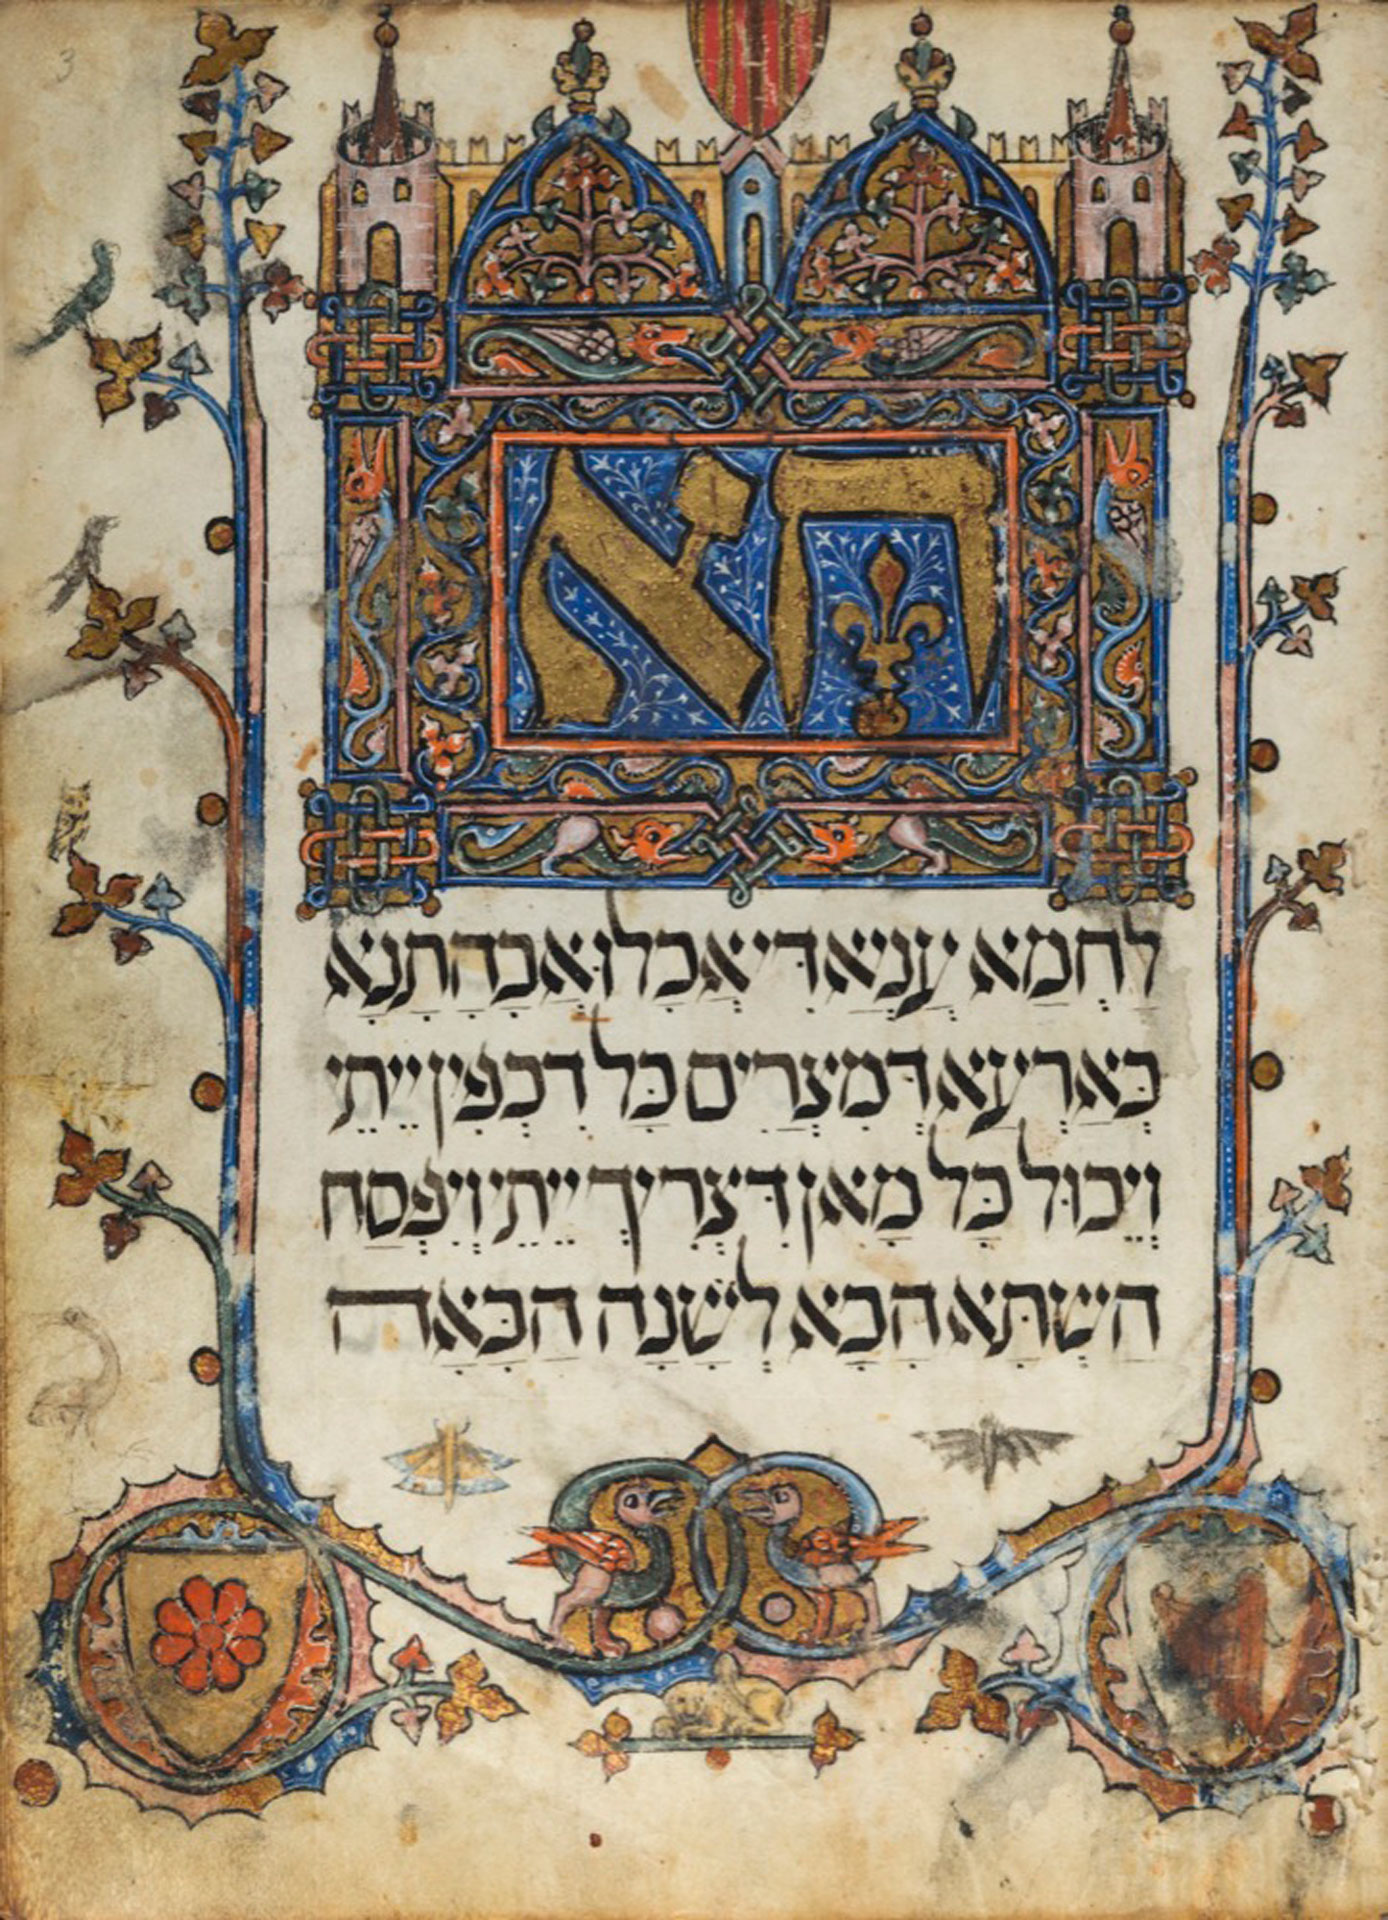 3
הא
לַחְמָא עֲנְיָא דִּי אֲכָלוּ אֲבָהָתָנָא
בְּאַרְעָא דְּמִצְרַיִם כָּל דִּכְפִין יֵיתֵי
וְיֵכוּל כָּל מָאן דִּצְרִיךְ יֵיתֵי וְיִפְסַח
הַשְׁתָּא הָכָא לְשָׁנָה הַבָּאָה